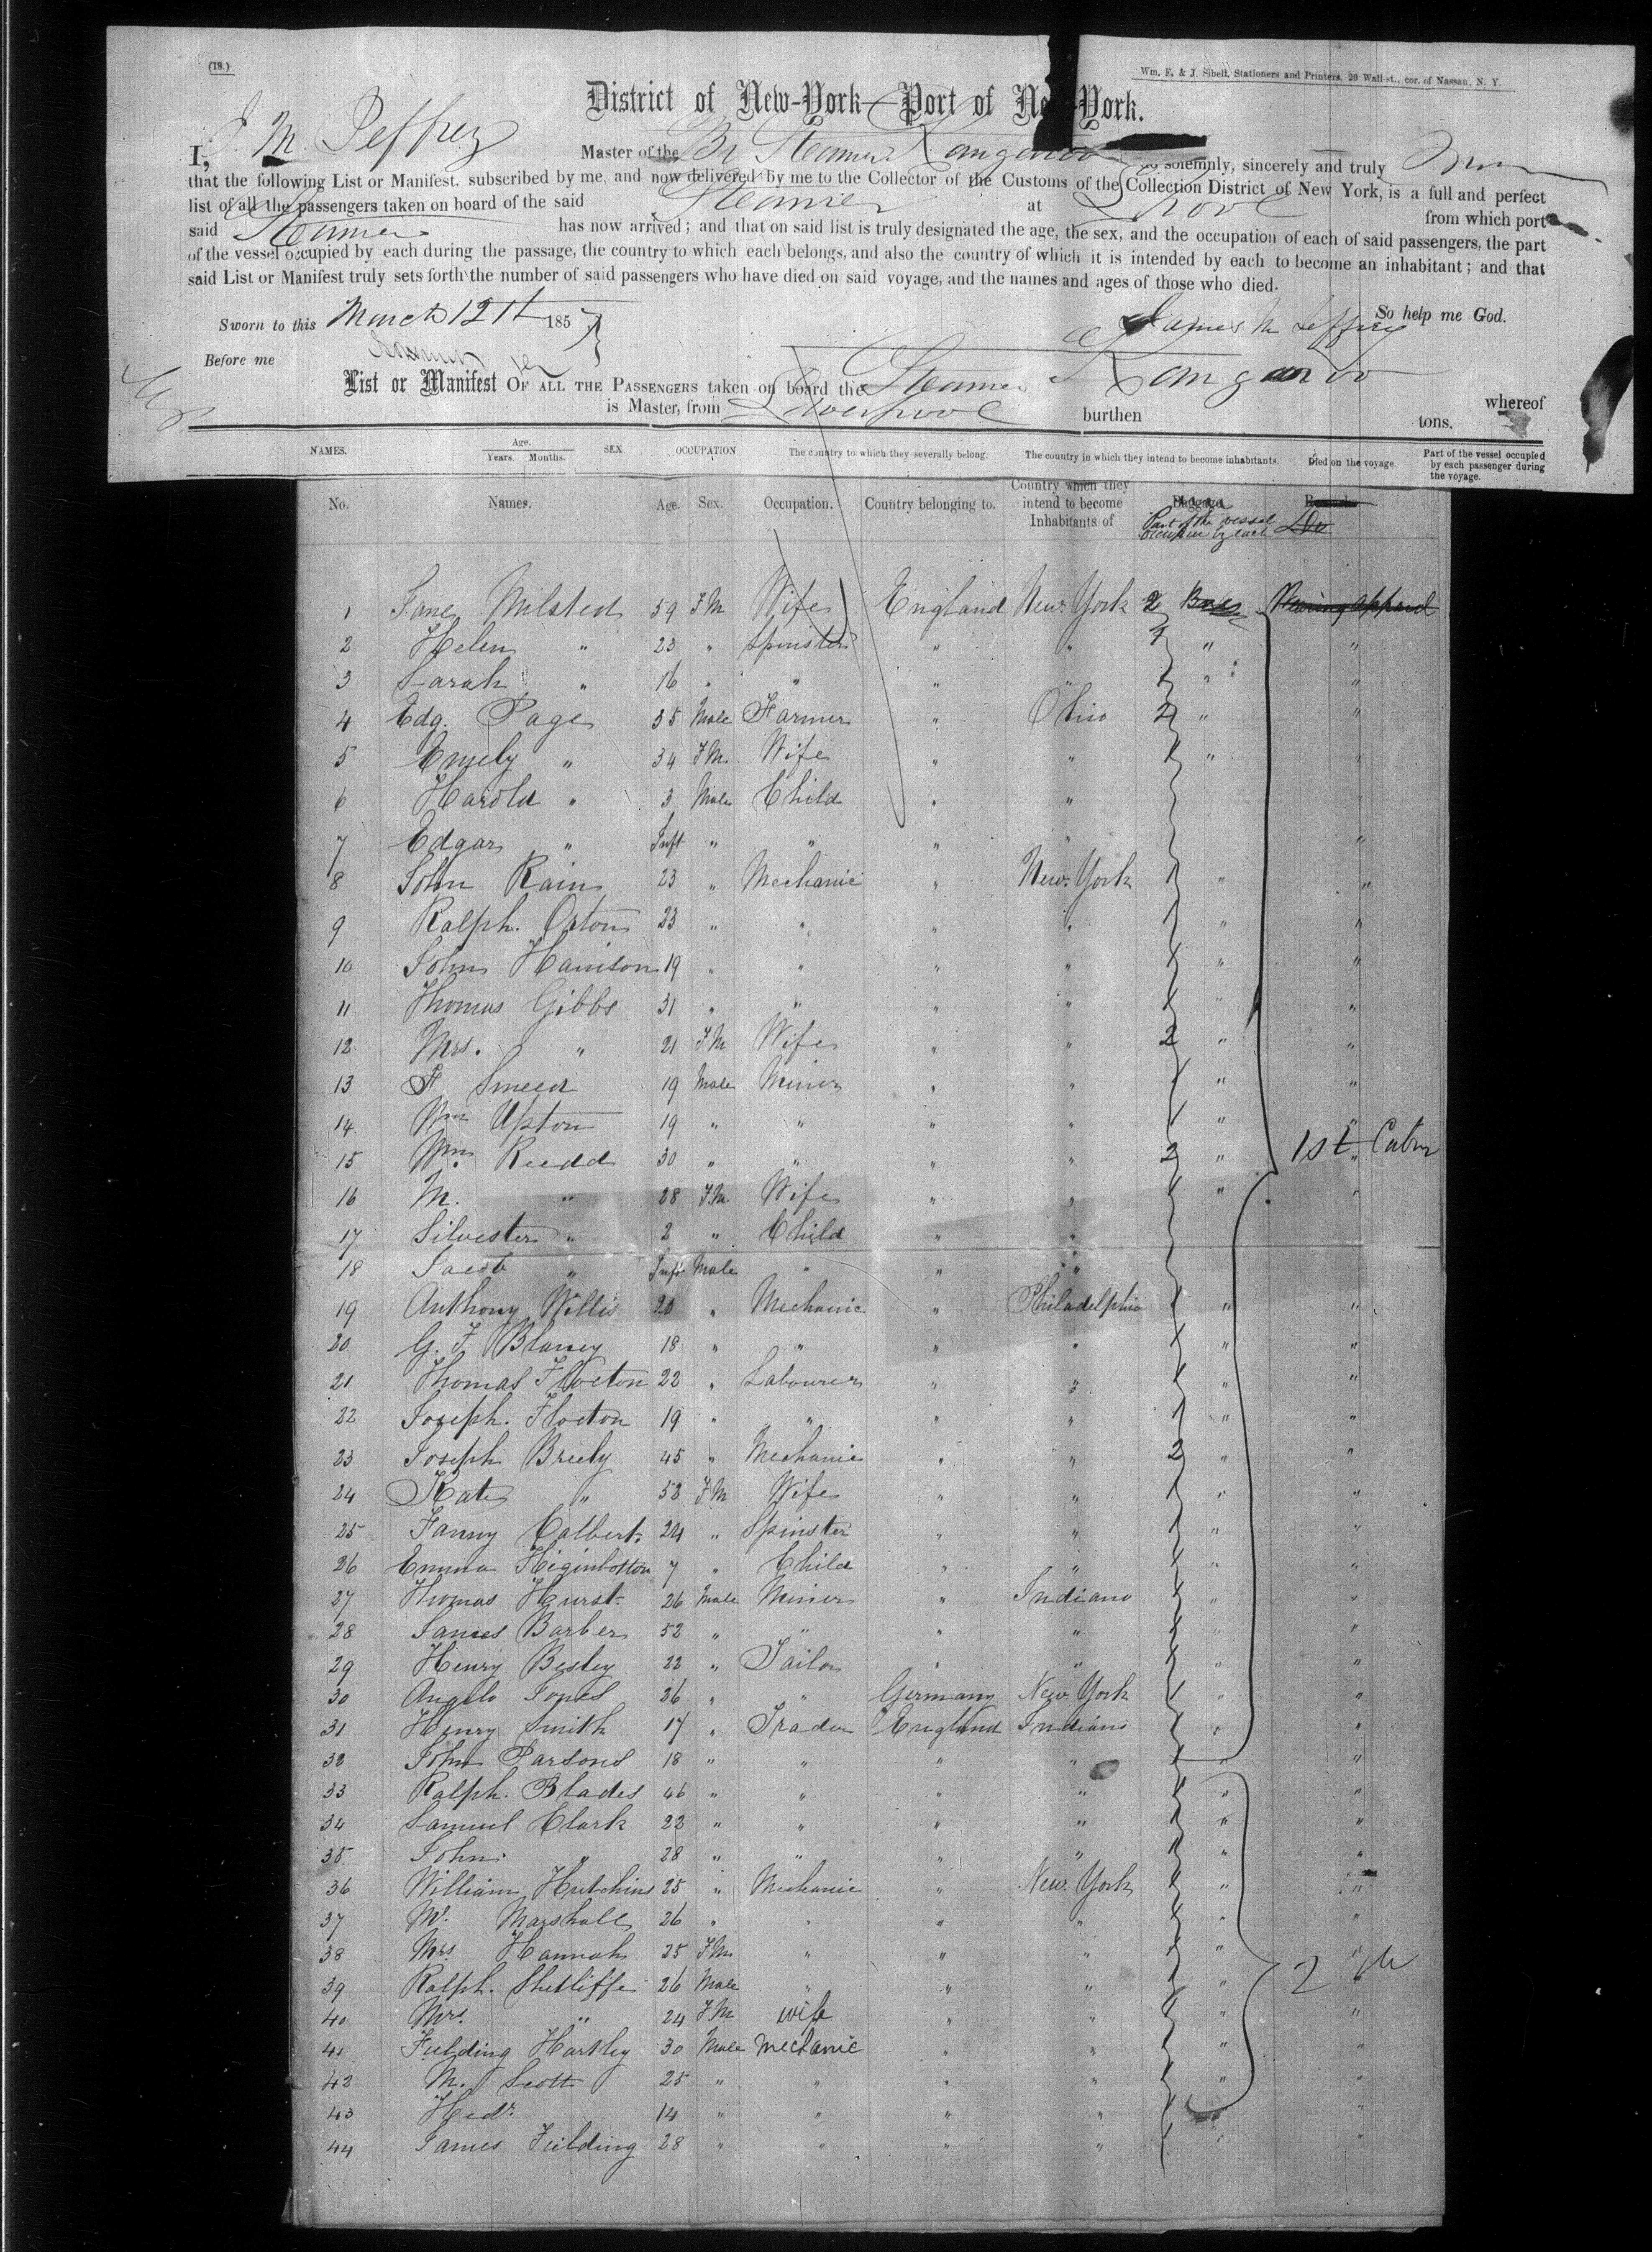 (18.)
Wm. F. & J. Sibell, Stationers and Printers, 20 Wall-st., cor. of Nassau, N. Y.
District of New-York—Port of New-York.
I, J. M. Jeffrey Master of the Br Steamer Kangaroo do solemnly, sincerely and truly
that the following List or Manifest, subscribed by me, and now delivered by me to the Collector of the Customs of the Collection District of New York, is a full and perfect
list of all the passengers taken on board of the said Steamer at Lpool from which port
said Steamer has now arrived; and that on said list is truly designated the age, the sex, and the occupation of each of said passengers, the part
of the vessel occupied by each during the passage, the country to which each belongs, and also the country of which it is intended by each to become an inhabitant; and that
said List or Manifest truly sets forth the number of said passengers who have died on said voyage, and the names and ages of those who died.
So help me God.
Sworn to this March 12th 1857
James M Jeffrey
Before me
List or Manifest OF ALL THE PASSENGERS taken on board the Steamer Kangaroo whereof
is Master, from Liverpool burthen tons.
NAMES. Age. Years. Months. SEX. OCCUPATION The country to which they severally belong. The country in which they intend to become inhabitants. Died on the voyage. Part of the vessel occupied by each passenger during the voyage.
No. Names. Age. Sex. Occupation. Country belonging to. Country which they intend to become Inhabitants of Baggage Part of the vessel occupied by each
1 Jane Milsted 59 FM Wife England New York 2 Boxes Wearing Apparel
2 Helen " 23 " Spinster " " 1 " "
3 Sarah " 16 " " " " 1 " "
4 Edg. Page 35 Male Farmer " Ohio 2 " "
5 Emely " 34 FM. Wife " " 1 " "
6 Harold " 3 Male Child " "
7 Edgar " Inft " " " " "
8 John Rain 23 " Mechanic " New York 1 " "
9 Ralph. Orton 23 " " " " 1 " "
10 John Harrison 19 " " " " 1 " "
11 Thomas Gibbs 31 " " " " 1 " "
12 Mrs. " 21 FM Wife " " 2 " "
13 F Smeed 19 Male Miner " " 1 " "
14 Wm Upton 19 " " " " 1 " "
15 Wm. Reedd 30 " " " " 2 " " 1st Cabin
16 M. " 28 FM. Wife " " 1 " "
17 Silvester " 2 " Child " "
18 Jacob " Inft Male " " "
19 Anthony Willis 20 " Mechanic " Philadelphia 1 " "
20 G. F Blaney 18 " " " " 1 " "
21 Thomas Flocton 22 " Labourer " " 1 " "
22 Joseph. Flocton 19 " " " " 1 " "
23 Joseph Breely 45 " Mechanic " " 2 " "
24 Kate " 52 FM Wife " " 1 " "
25 Fanny Colbert. 24 " Spinster " " 1 " "
26 Emma Higinbotton 7 " Child " " 1 " "
27 Thomas Hurst 26 Male Miner " Indiana 1 " "
28 James Barber 52 " " " " 1 " "
29 Henry Besley 22 " Tailor " " 1 " "
30 Angelo Jones 26 " " Germany New York 1 " "
31 Henry Smith 17 " Trader England Indiana 1 " "
32 John Parsons 18 " " " " 1 " "
33 Ralph. Blades 46 " " " " 1 " "
34 Samuel Clark 22 " " " " 1 " "
35 John " 28 " " " " 1 " "
36 William Hutchins 25 " Mechanic " New York 1 " "
37 Mr. Marshall 26 " " " " 1 " "
38 Mrs Hannah 25 FM. " " " 1 " "
39 Ralph. Shetliffe 26 Male " " " 1 " " 2
40 Mrs. " 24 FM wife " " 1 " "
41 Fielding Hartley 30 Male mechanic " " 1 " "
42 M. Scott 25 " " " " 1 " "
43 Hedr. 14 " " " " 1 "
44 James Fielding 28 " " " " 1 " "